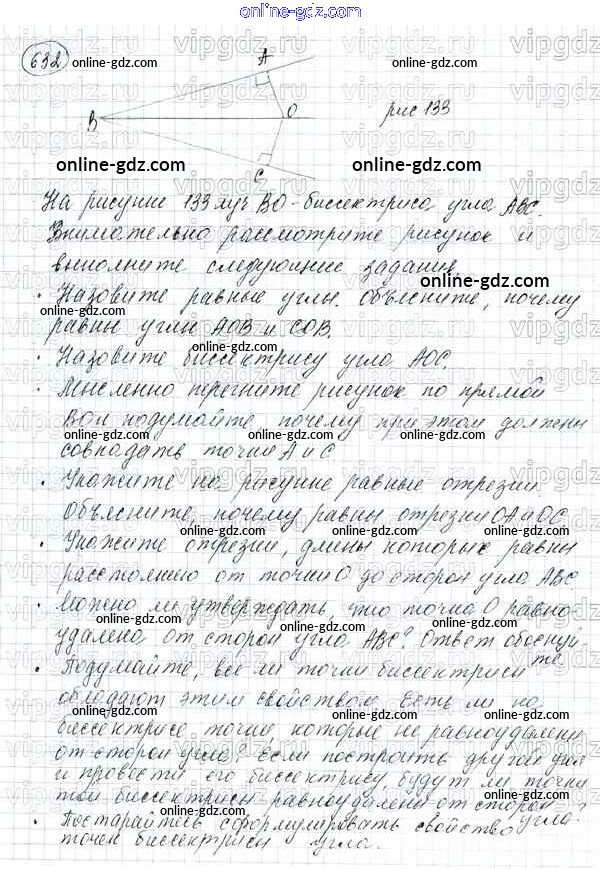 online-gdz.com
632
A
B
O
C
рис 133
На рисунке 133 луч ВО - биссектриса угла АВС.
Внимательно рассмотрите рисунок и
выполните следующие задания.
· Назовите равные углы. Объясните, почему
равны углы АОВ и СОВ.
· Назовите биссектрису угла АОС.
· Мысленно перегните рисунок по прямой
ВО и подумайте, почему при этом должны
совпадать точки А и С.
· Укажите на рисунке равные отрезки.
Объясните, почему равны отрезки ОА и ОС
· Укажите отрезки, длины которых равны
расстоянию от точки О до сторон угла АВС.
· Можно ли утверждать, что точка О равно-
удалена от сторон угла АВС? Ответ обоснуй-
те.
· Подумайте, все ли точки биссектрисы
обладают этим свойством. Есть ли на
биссектрисе точки, которые не равноудалены
от сторон угла? Если построить другой угол
и провести его биссектрису, будут ли точки
той биссектрисы равноудалены от сторон
угла?
· Постарайтесь сформулировать свойство
точек биссектрисы угла.